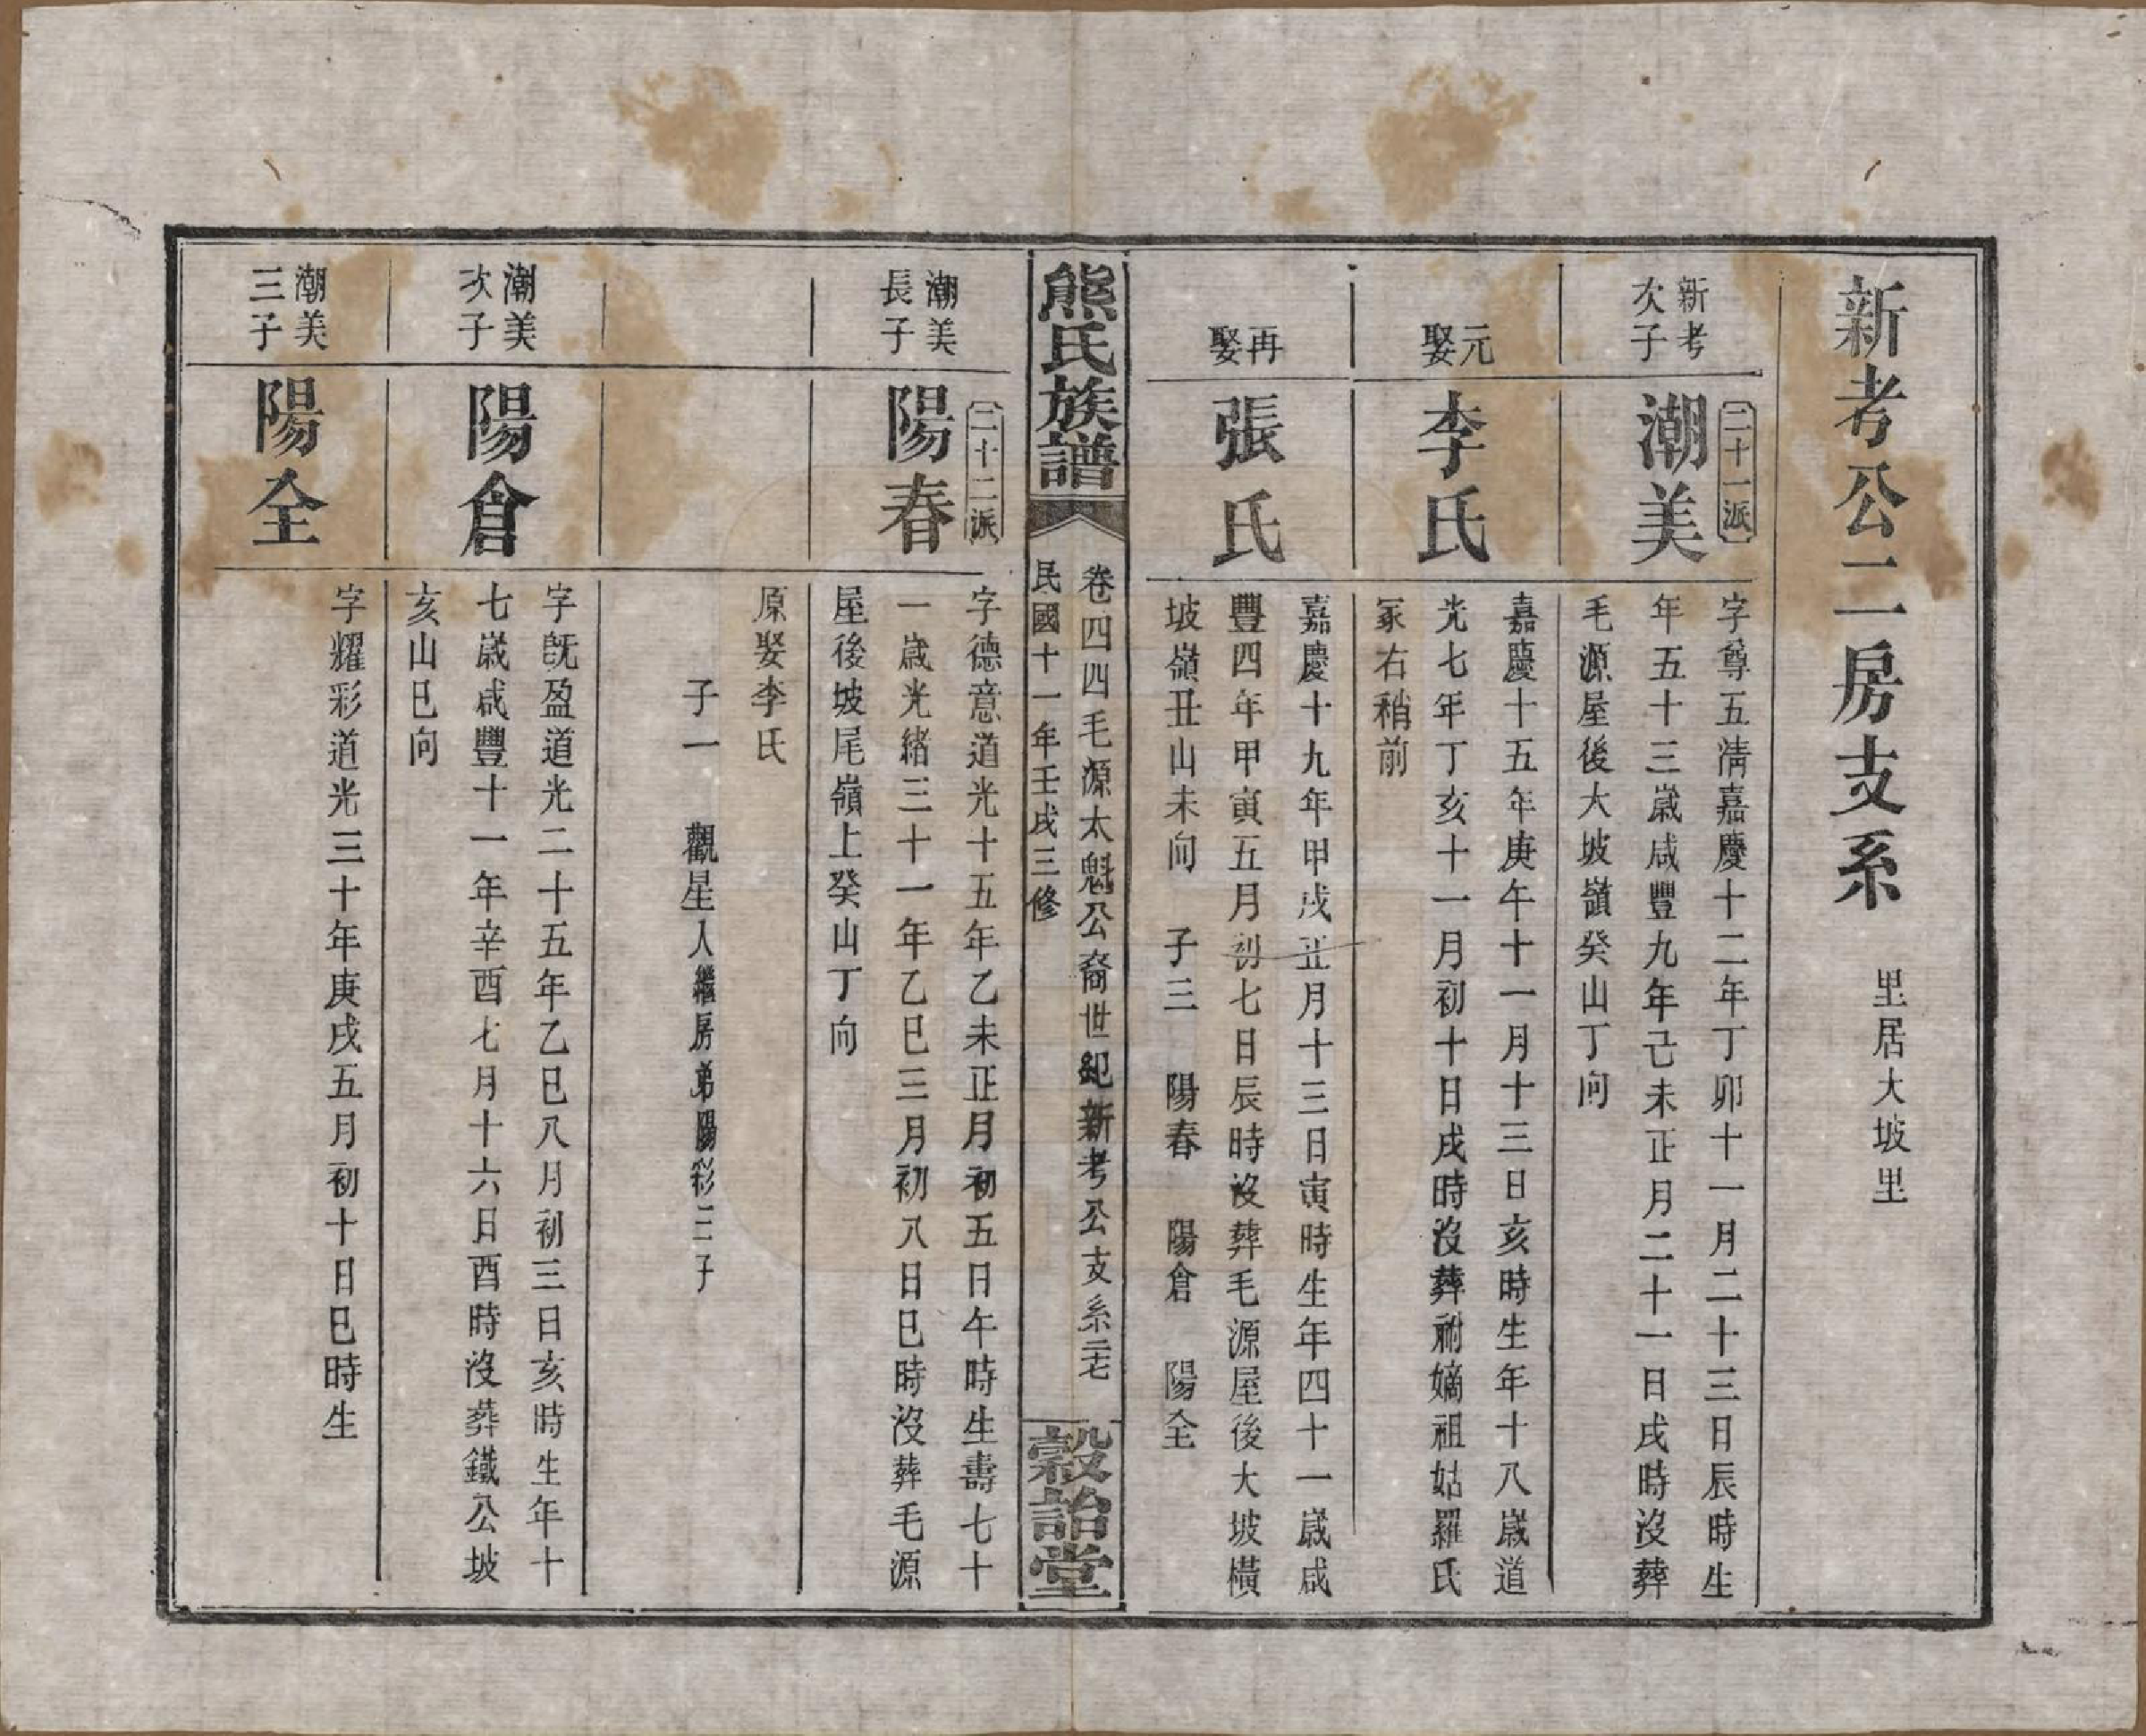 新考公二房支系　里居大坡里
新考
次子
二十一派
潮美
字尊五清嘉慶十二年丁卯十一月二十三日辰時生
年五十三歲咸豐九年己未正月二十一日戌時沒葬
毛源屋後大坡嶺癸山丁向
元
娶
李氏
嘉慶十五年庚午十一月十三日亥時生年十八歲道
光七年丁亥十一月初十日戌時沒葬祔嫡祖姑羅氏
冢右稍前
再
娶
張氏
嘉慶十九年甲戌正月十三日寅時生年四十一歲咸
豐四年甲寅五月初七日辰時沒葬毛源屋後大坡橫
坡嶺丑山未向　子三　陽春　陽倉　陽全
熊氏族譜
卷四四毛源太魁公裔世紀新考公支系二七
民國十一年壬戌三修
穀詒堂
潮美
長子
二十二派
陽春
字德意道光十五年乙未正月初五日午時生壽七十
一歲光緒三十一年乙巳三月初八日巳時沒葬毛源
屋後坡尾嶺上癸山丁向
原娶李氏
子一　觀星入繼房弟陽彩三子
潮美
次子
陽倉
字既盈道光二十五年乙巳八月初三日亥時生年十
七歲咸豐十一年辛酉七月十六日酉時沒葬鐵公坡
亥山巳向
潮美
三子
陽全
字耀彩道光三十年庚戌五月初十日巳時生